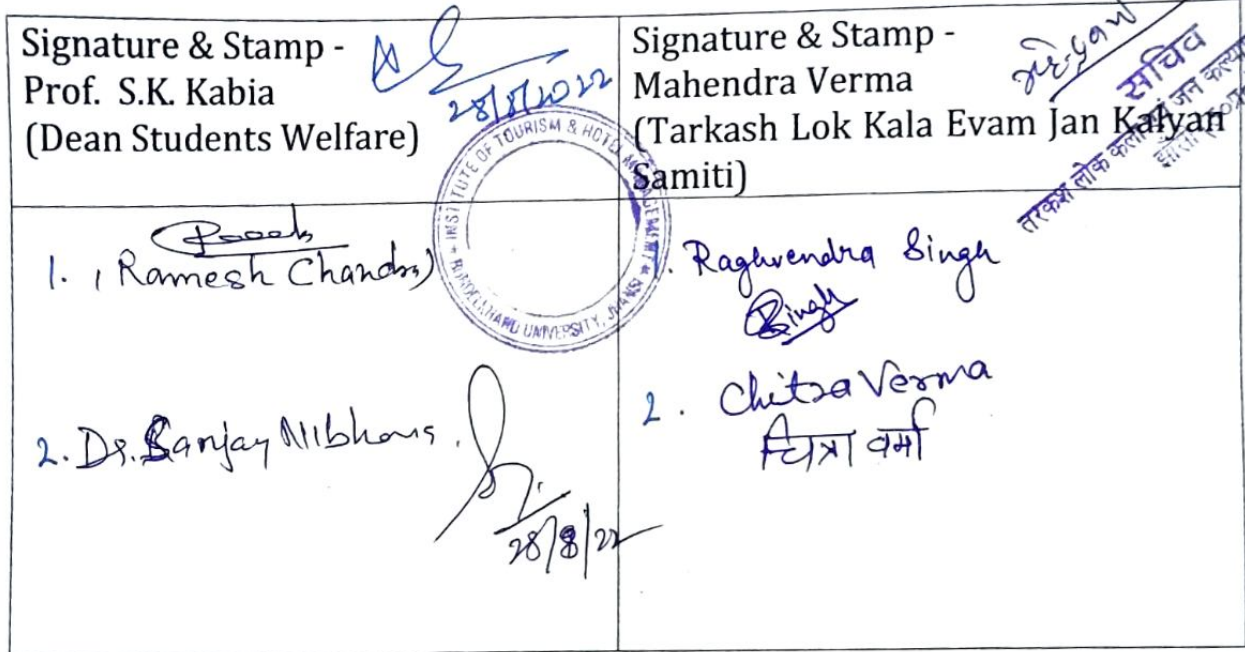 Signature & Stamp -
Prof. S.K. Kabia
(Dean Students Welfare)
28/8/2022
Signature & Stamp -
Mahendra Verma
(Tarkash Lok Kala Evam Jan Kalyan
Samiti)
सचिव
तरकश लोक कला जन कल्याण
INSTITUTE OF TOURISM & HOTEL MANAGEMENT
UNIVERSITY
1. (Ramesh Chandra)
2. Dr. Sanjay
28/8/22
Raghvendra Singh
Singh
2. Chitra Verma
चित्रा वर्मा